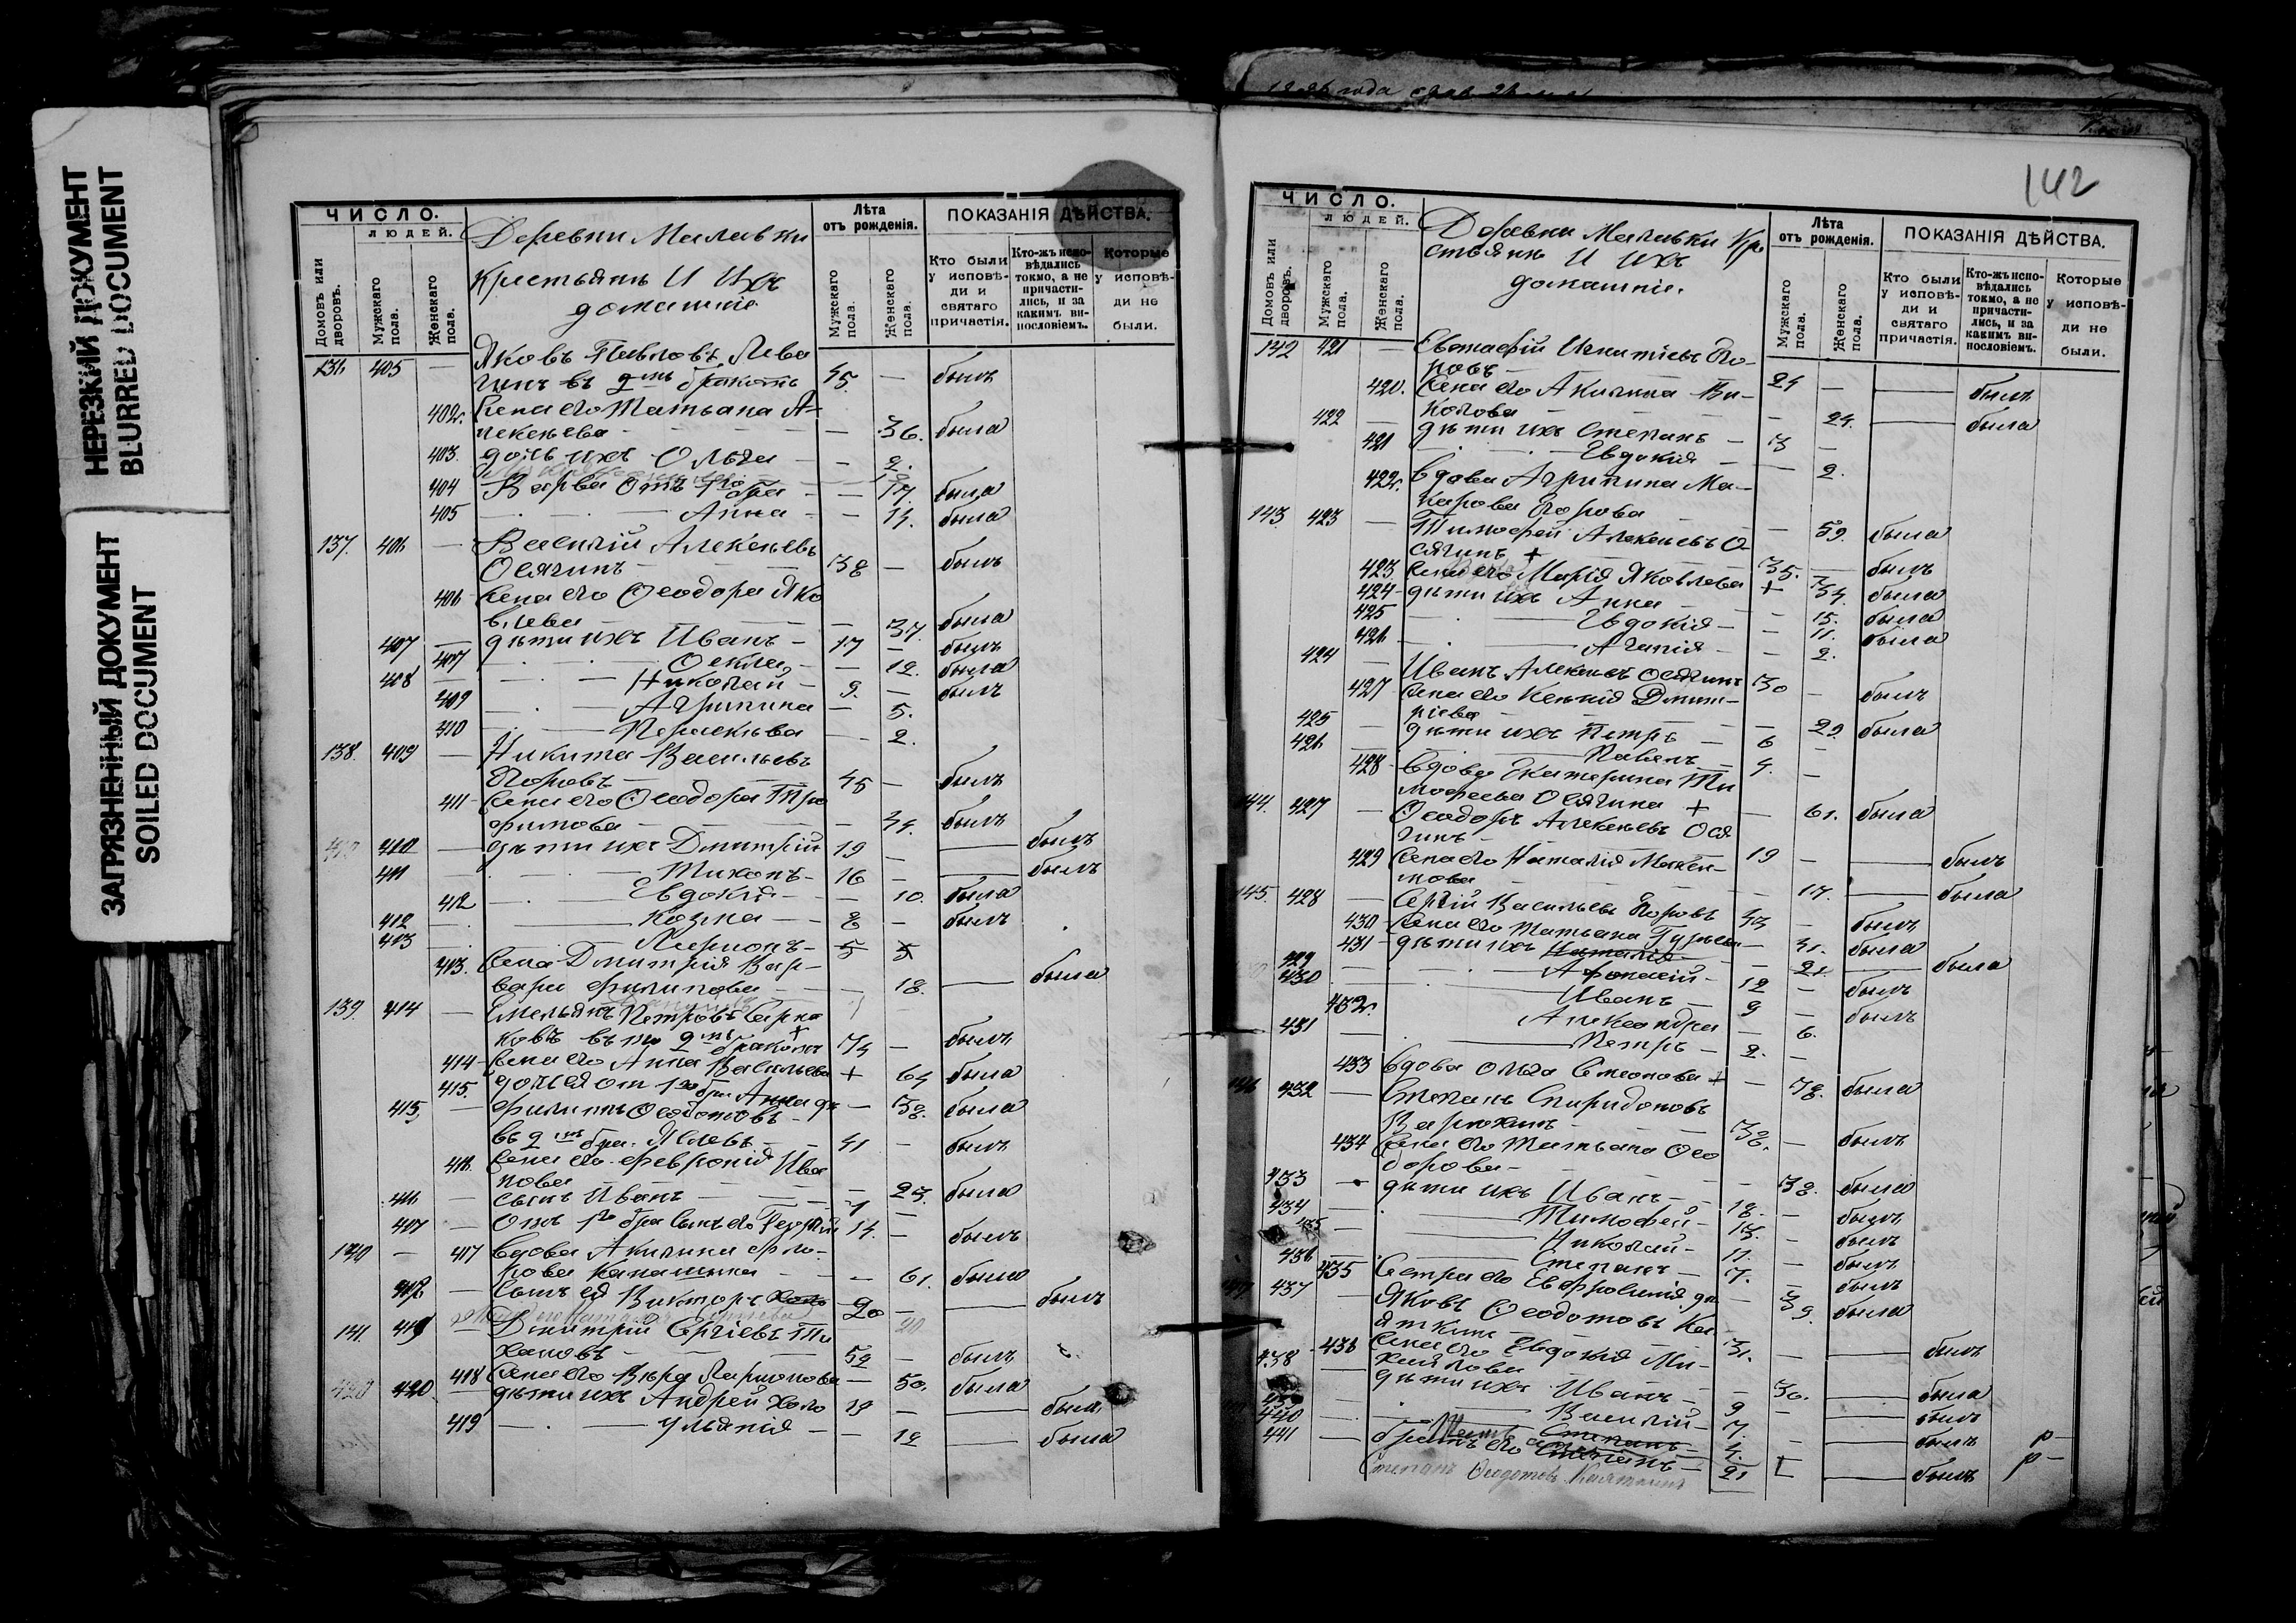 НЕРЕЗКИЙ ДОКУМЕНТ
BLURRED DOCUMENT
ЗАГРЯЗНЕННЫЙ ДОКУМЕНТ
SOILED DOCUMENT
ЧИСЛО.
ЛЮДЕЙ.
Домовъ или дворовъ.
Мужскаго пола.
Женскаго пола.
Деревни Малавки
крестьянъ и ихъ
домашніе
Лѣта
отъ рожденія.
Мужскаго пола.
Женскаго пола.
ПОКАЗАНІЯ ДѢЙСТВА.
Кто были у исповѣ-ди и святаго причастія.
Кто-жъ испо-вѣдались токмо, а не причасти-лись, и за какимъ ви-нословіемъ.
Которые у исповѣ-ди не были.
136 405 — Яковъ Павловъ Лева
гинъ въ 2мъ бракомъ 45 — былъ
402 Жена его Татьяна А-
лексѣева — 36. была
403 дочь ихъ Ольга — 2.
404 Варва отъ 1го бра — 17. была
405 Анна — 14. была
137. 406 — Василій Алексѣевъ
Осягинъ 38 — былъ
406 Жена его Ѳеодора Яко
влева — 37. была
407 — дѣти ихъ Иванъ 17 — былъ
407 Ѳекла — 12. была
408 — Николай 9. — былъ
409 Агрипина — 5.
410 Параскева — 2.
138. 409 — Никита Васильевъ
Егоровъ 45 — былъ
411 Жена его Ѳеодора Тро
фимова — 44. былъ
410 — дѣти ихъ Дмитрій 19 — былъ
411 — Тихонъ 16 — былъ
412 Евдокія — 10. была
412 — Козма 8 — былъ
413 — Ларіонъ 5
413. Жена Дмитрія Вар-
вара Филипова — 18. была
139. 414 — Емельянъ Петровъ
ковъ въ 2мъ бракомъ 74 — былъ
414 Жена его Анна Васильева + 64 была
415. дочь ея от 1го бра Анна дѣ — 38. была
415. — Филиппъ Ѳеодотовъ
въ 2мъ бра. 41 — былъ
416. Жена его Февронія Ива
нова — 23. была
416 — сынъ Иванъ 1 —
417 — Отъ 1го бра сынъ его Георгій 14. — былъ
140 — 417 Вдова Акилина Фро-
лова — 61. была
418 — Сынъ ея Викторъ холо 20 — былъ
141. 419 — Дмитрій Сергіевъ Ти
хановъ 52 — былъ
418 Жена его Вѣра Ларионова — 50. была
420 — дѣти ихъ Андрей холо 19 — былъ
419 Ульянія — 12 была
142
ЧИСЛО.
ЛЮДЕЙ.
Домовъ или дворовъ.
Мужскаго пола.
Женскаго пола.
Деревни Малавки Кре
стьянъ и ихъ
домашніе.
Лѣта
отъ рожденія.
Мужскаго пола.
Женскаго пола.
ПОКАЗАНІЯ ДѢЙСТВА.
Кто были у исповѣ-ди и святаго причастія.
Кто-жъ испо-вѣдались токмо, а не причасти-лись, и за какимъ ви-нословіемъ.
Которые у исповѣ-ди не были.
142 421 — Евстафій Игнатіевъ Его-
ровъ 24 — былъ
420. Жена его Акилина Ни-
колова — 24. была
422 — дѣти ихъ Степанъ 3 —
421 Евдокія — 2.
422. Вдова Агрипина Ма-
карова Егорова — 59. была
143 423 — Тимофей Алексѣевъ О-
сягинъ + 35. — былъ
423 Жена его Марія Яковлева + 34. была
424 дѣти ихъ Анна — 15. была
425 Евдокія — 11. была
426 Агапія — 2.
424 — Иванъ Алексѣевъ Осягинъ 30 — былъ
427 Жена его Ксенія Дмит-
ріева — 29. была
425 — дѣти ихъ Петръ 6 —
426 — Павелъ 4. —
428 Вдова Екатерина Ти
мофеева Осягина + — 61. была
144. 427 — Ѳеодоръ Алексѣевъ Ося
гинъ 19 — былъ
429 Жена его Наталія Макси-
мова — 17. — была
145. 428 — Сергій Васильевъ Егоровъ 43 — былъ
430 Жена его Татьяна Гурьева — 41. была
431 дѣти ихъ Наталія — 21. была
429 — Афанасій 12 — былъ
430 — Иванъ 9 — былъ
432. Александра — 6.
431 — Петръ 2. —
433 Вдова Ольга Симонова + — 78. была
146 432 — Степанъ Спиридоновъ
38. — былъ
434 Жена его Татьяна Ѳео
дорова — 38. была
433 — дѣти ихъ Иванъ 18. — былъ
434 — Тимофей 13. — былъ
435 — Николай 11. — былъ
436 — Степанъ 7. — былъ
435 Сестра его Евфросинія дѣ — 39. была
437 — Яковъ Ѳеодотовъ Ка
лткинъ 31. — былъ
436 Жена его Евдокія Ми-
хайлова — 30. была
438 — дѣти ихъ Иванъ 9 — былъ
Василій 7. — былъ
440 Степанъ 4.
441 — братъ его Степанъ 21 былъ
Степанъ Ѳеодотовъ Калткинъ